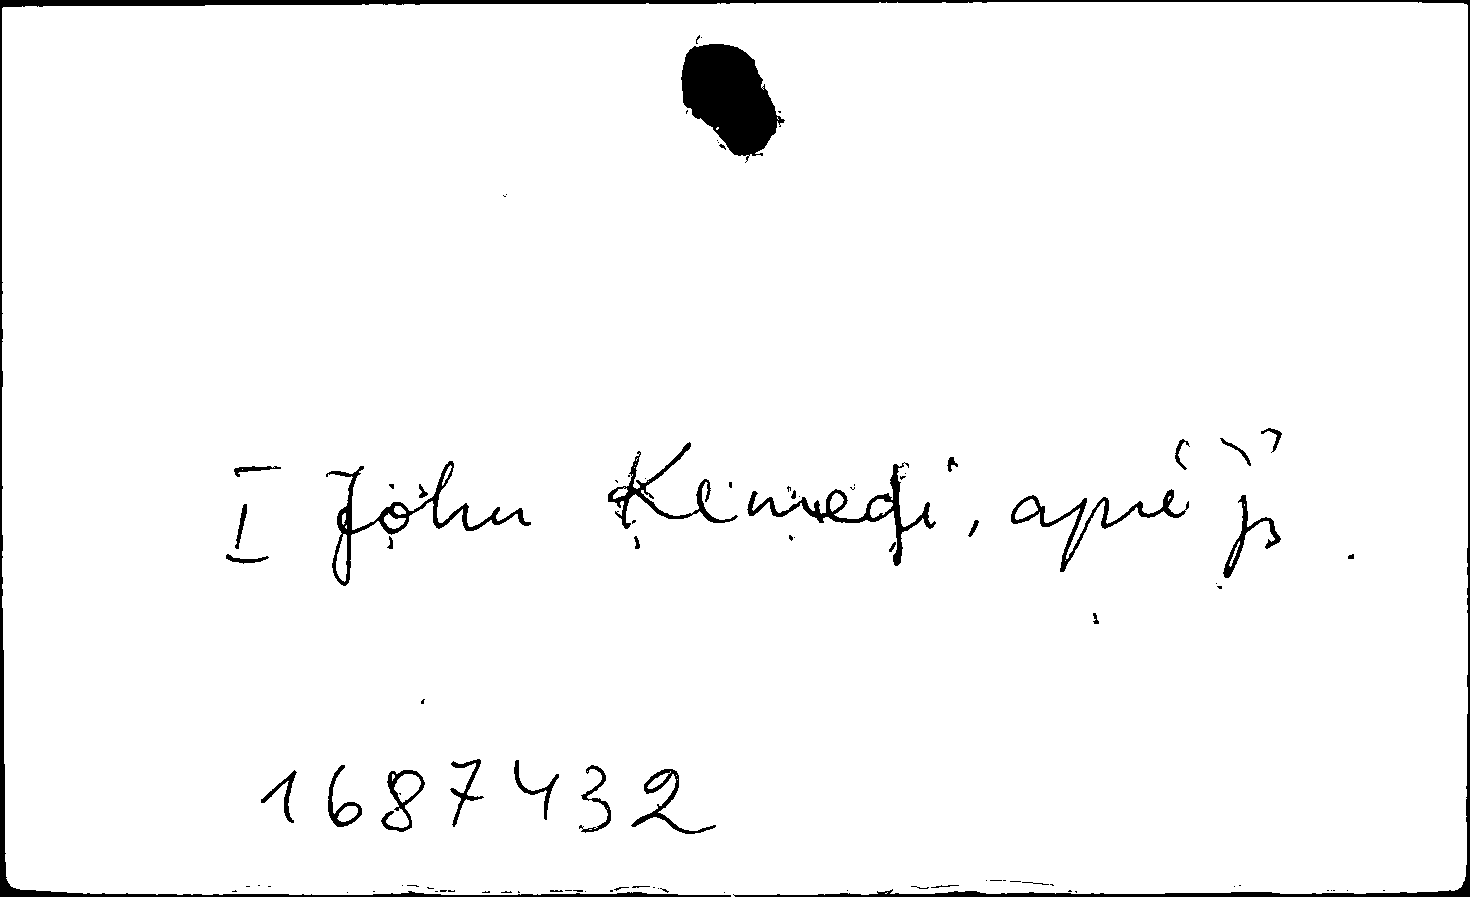 I John Kemedi, apie jį
1687432